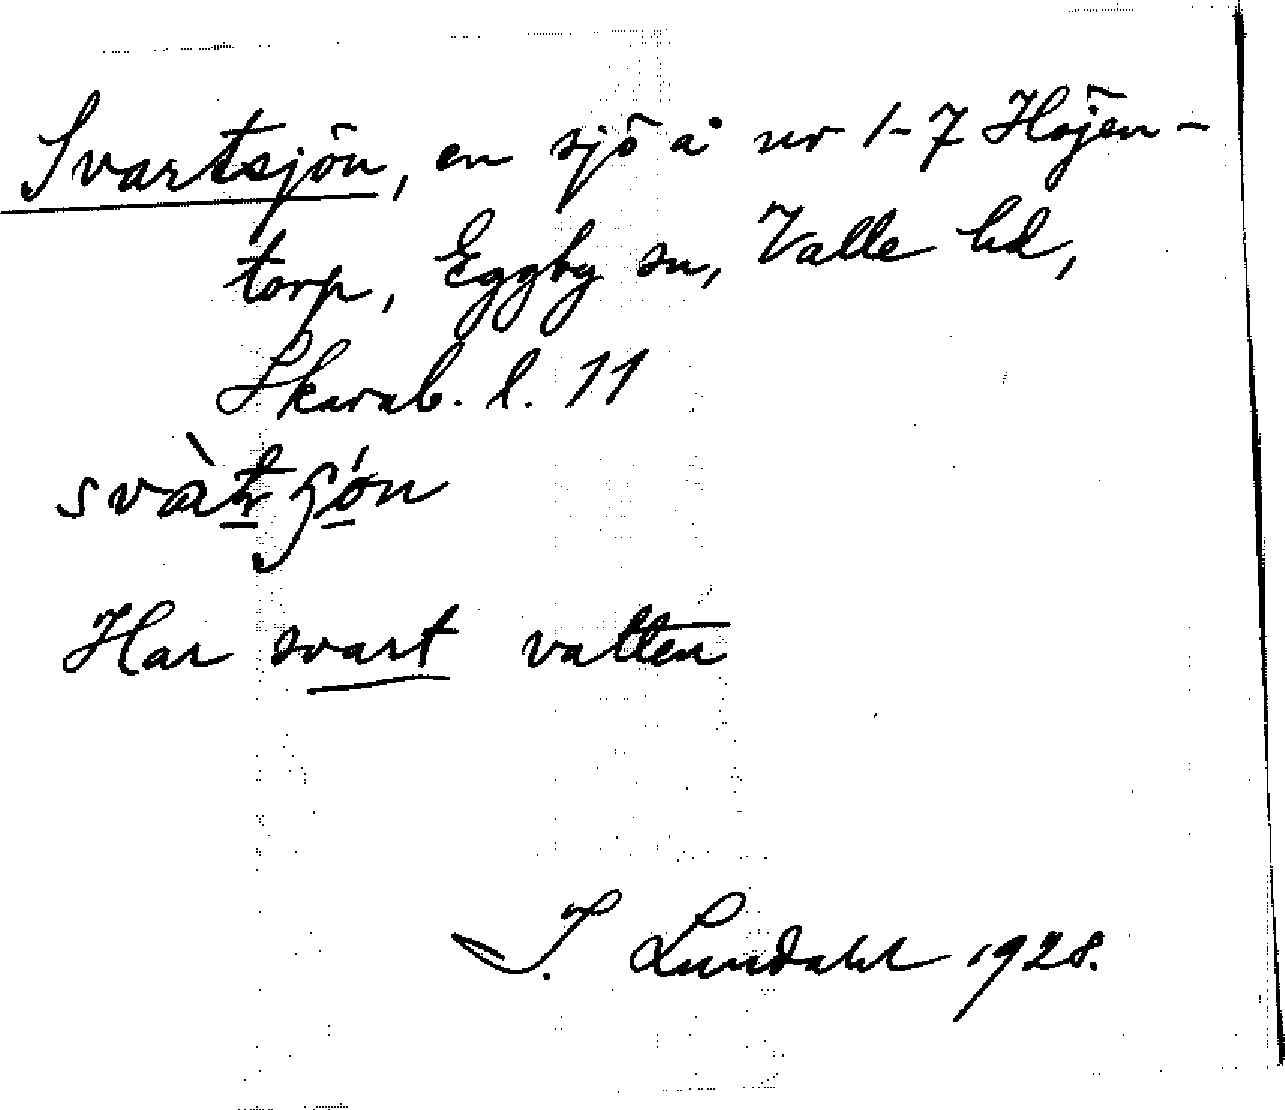 Svartsjön, en sjö å nr 1-7 Höjen-
torp, Eggby sn, Valle hd,
Skarab. l. 11
Har svart vatten
I. Lundahl 1928.